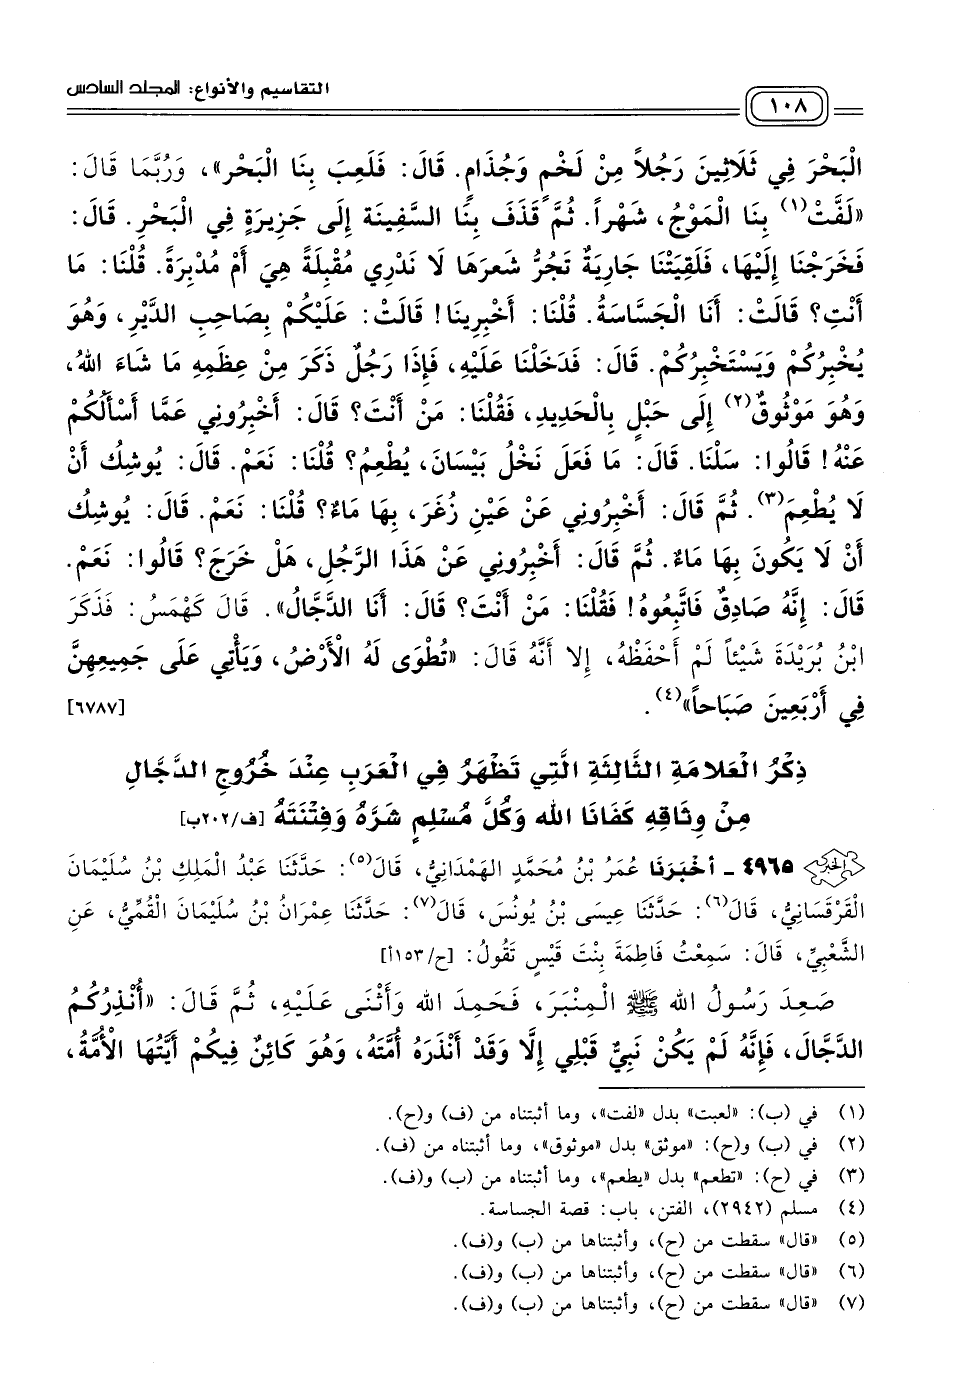 التقاسيم والأنواع: المجلد السادس
١٠٨
الْبَحْرَ فِي ثَلَاثِينَ رَجُلاً مِنْ لَخْمٍ وَجُذَامٍ. قَالَ: فَلَعِبَ بِنَا الْبَحْر»، وَرُبَّمَا قَالَ:
«لَفَّتْ(١) بِنَا الْمَوْجُ، شَهْراً. ثُمَّ قَذَفَ بِنَا السَّفِينَة إِلَى جَزِيرَةٍ فِي الْبَحْرِ. قَالَ:
فَخَرَجْنَا إِلَيْهَا، فَلَقِيَتْنَا جَارِيَةٌ تَجُرُّ شَعرَهَا لَا نَدْرِي مُقْبِلَةً هِيَ أَمْ مُدْبِرَةً. قُلْنَا: مَا
أَنْتِ؟ قَالَتْ: أَنَا الْجَسَّاسَةُ. قُلْنَا: أَخْبِرِينَا! قَالَتْ: عَلَيْكُمْ بِصَاحِبِ الدَّيْرِ، وَهُوَ
يُخْبِرُكُمْ وَيَسْتَخْبِرُكُمْ. قَالَ: فَدَخَلْنَا عَلَيْهِ، فَإِذَا رَجُلٌ ذَكَرَ مِنْ عِظَمِهِ مَا شَاءَ اللهُ،
وَهُوَ مَوْثُوقٌ(٢) إِلَى حَبْلٍ بِالْحَدِيدِ، فَقُلْنَا: مَنْ أَنْتَ؟ قَالَ: أَخْبِرُونِي عَمَّا أَسْأَلُكُمْ
عَنْهُ! قَالُوا: سَلْنَا. قَالَ: مَا فَعَلَ نَخْلُ بَيْسَانَ، يُطْعِمُ؟ قُلْنَا: نَعَمْ. قَالَ: يُوشِكُ أَنْ
لَا يُطْعِمَ(٣). ثُمَّ قَالَ: أَخْبِرُونِي عَنْ عَيْنِ زُغَرَ، بِهَا مَاءٌ؟ قُلْنَا: نَعَمْ. قَالَ: يُوشِكُ
أَنْ لَا يَكُونَ بِهَا مَاءٌ. ثُمَّ قَالَ: أَخْبِرُونِي عَنْ هَذَا الرَّجُلِ، هَلْ خَرَجَ؟ قَالُوا: نَعَمْ.
قَالَ: إِنَّهُ صَادِقٌ فَاتَّبِعُوهُ! فَقُلْنَا: مَنْ أَنْتَ؟ قَالَ: أَنَا الدَّجَّالُ». قَالَ كَهْمَسُ: فَذَكَرَ
ابْنُ بُرَيْدَةَ شَيْئاً لَمْ أَحْفَظْهُ، إِلا أَنَّهُ قَالَ: «تُطْوَى لَهُ الْأَرْضُ، وَيَأْتِي عَلَى جَمِيعِهِنَّ
فِي أَرْبَعِينَ صَبَاحاً»(٤). [٦٧٨٧]
ذِكْرُ الْعَلامَةِ الثَّالِثَةِ الَّتِي تَظْهَرُ فِي الْعَرَبِ عِنْدَ خُرُوجِ الدَّجَّالِ
مِنْ وِثَاقِهِ كَفَانَا الله وَكُلَّ مُسْلِمٍ شَرَّهُ وَفِتْنَتَهُ [ف/٢٠٢ب]
٤٩٦٥ - أخْبَرَنَا عُمَرُ بْنُ مُحَمَّدٍ الهَمْدَانِيُّ، قَالَ(٥): حَدَّثَنَا عَبْدُ الْمَلِكِ بْنُ سُلَيْمَانَ
الْقَرْقَسَانِيُّ، قَالَ(٦): حَدَّثَنَا عِيسَى بْنُ يُونُسَ، قَالَ(٧): حَدَّثَنَا عِمْرَانُ بْنُ سُلَيْمَانَ الْقُمِّيُّ، عَنِ
الشَّعْبِيِّ، قَالَ: سَمِعْتُ فَاطِمَةَ بِنْتَ قَيْسٍ تَقُولُ: [ح/١٥٣أ]
صَعِدَ رَسُولُ الله ﷺ الْمِنْبَرَ، فَحَمِدَ الله وَأَثْنَى عَلَيْهِ، ثُمَّ قَالَ: «أُنْذِرُكُمُ
الدَّجَّالَ، فَإِنَّهُ لَمْ يَكُنْ نَبِيٌّ قَبْلِي إِلَّا وَقَدْ أَنْذَرَهُ أُمَّتَهُ، وَهُوَ كَائِنٌ فِيكُمْ أَيَّتُهَا الأُمَّةُ،
(١) في (ب): «لعبت» بدل «لفت»، وما أثبتناه من (ف) و(ح).
(٢) في (ب) و(ح): «موثق» بدل «موثوق»، وما أثبتناه من (ف).
(٣) في (ح): «تطعم» بدل «يطعم»، وما أثبتناه من (ب) و(ف).
(٤) مسلم (٢٩٤٢)، الفتن، باب: قصة الجساسة.
(٥) «قال» سقطت من (ح)، وأثبتناها من (ب) و(ف).
(٦) «قال» سقطت من (ح)، وأثبتناها من (ب) و(ف).
(٧) «قال» سقطت من (ح)، وأثبتناها من (ب) و(ف).